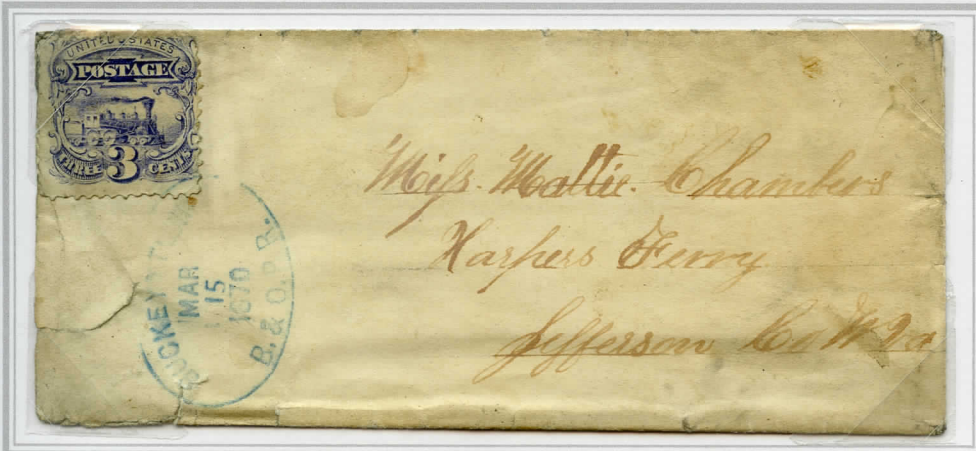 UNITED STATES
POSTAGE
THREE 3 CENTS
MAR
15
1870
B. & O. R. R.
Miss. Mattie. Chambers
Harpers Ferry
Jefferson Co W Va